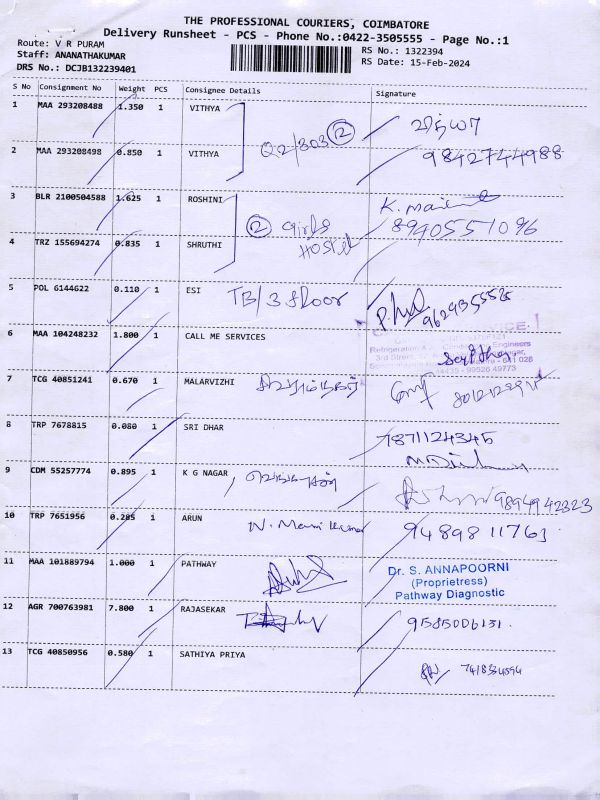 THE PROFESSIONAL COURIERS, COIMBATORE
Delivery Runsheet - PCS - Phone No.:0422-3505555 - Page No.:1
Route: V R PURAM
Staff: ANANATHAKUMAR
DRS No.: DCJB132239401
RS No.: 1322394
RS Date: 15-Feb-2024
S No Consignment No Weight PCS Consignee Details Signature
1 MAA 293208488 1.350 1 VITHYA வித்யா
Q2/303 2
2 MAA 293208498 0.850 1 VITHYA 9842744988
3 BLR 2100504588 1.625 1 ROSHINI K.
2 Girls Hostel 89405551096
4 TRZ 155694274 0.835 1 SHRUTHI
5 POL 6144622 0.110 1 ESI TB/3 floor 9629355525
6 MAA 104248232 1.800 1 CALL ME SERVICES
Refrigeration & Engineers
7 TCG 40851241 0.670 1 MALARVIZHI
8 TRP 7678815 0.080 1 SRI DHAR 7871124345
9 CDM 55257774 0.895 1 K G NAGAR 9894942323
10 TRP 7651956 0.285 1 ARUN N. Mani Kumar 9489811763
11 MAA 101889794 1.000 1 PATHWAY
Dr. S. ANNAPOORNI
(Proprietress)
Pathway Diagnostic
12 AGR 700763981 7.800 1 RAJASEKAR 9585006131.
13 TCG 40850956 0.580 1 SATHIYA PRIYA